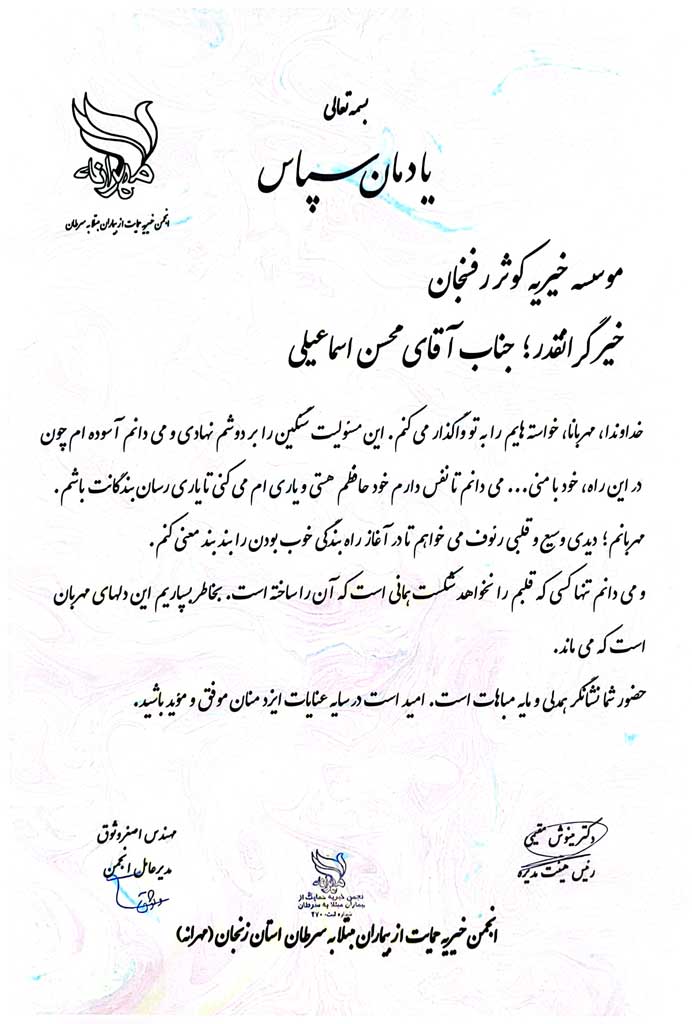 بسمه تعالی
یادمان سپاس
مهرانه
انجمن خیریه حمایت از بیماران مبتلا به سرطان
موسسه خیریه کوثر رفسنجان
خیر گرانقدر؛ جناب آقای محسن اسماعیلی
خداوندا، مهربانا، خواسته هایم را به تو واگذار می کنم. این مسئولیت سنگین را بر دوشم نهادی و می دانم آسوده ام چون
در این راه، خود با منی... می دانم تا نفس دارم خود حافظم هستی و یاری ام می کنی تا یاری رسان بندگانت باشم.
مهربانم؛ دیدی وسیع و قلبی رئوف می خواهم تا در آغاز راه بندگی خوب بودن را بند بند معنی کنم.
و می دانم تنها کسی که قلبم را نخواهد شکست همانی است که آن را ساخته است. بخاطر بسپاریم این دلهای مهربان
است که می ماند.
حضور شما نشانگر همدلی و مایه مباهات است. امید است در سایه عنایات ایزد منان موفق و مؤید باشید.
دکتر مینوش مقیمی
رئیس هیئت مدیره
مهندس اصغر وثوق
مدیر عامل انجمن
مهرانه
انجمن خیریه حمایت از
بیماران مبتلا به سرطان
شماره ثبت: ۴۷۰
انجمن خیریه حمایت از بیماران مبتلا به سرطان استان زنجان (مهرانه)